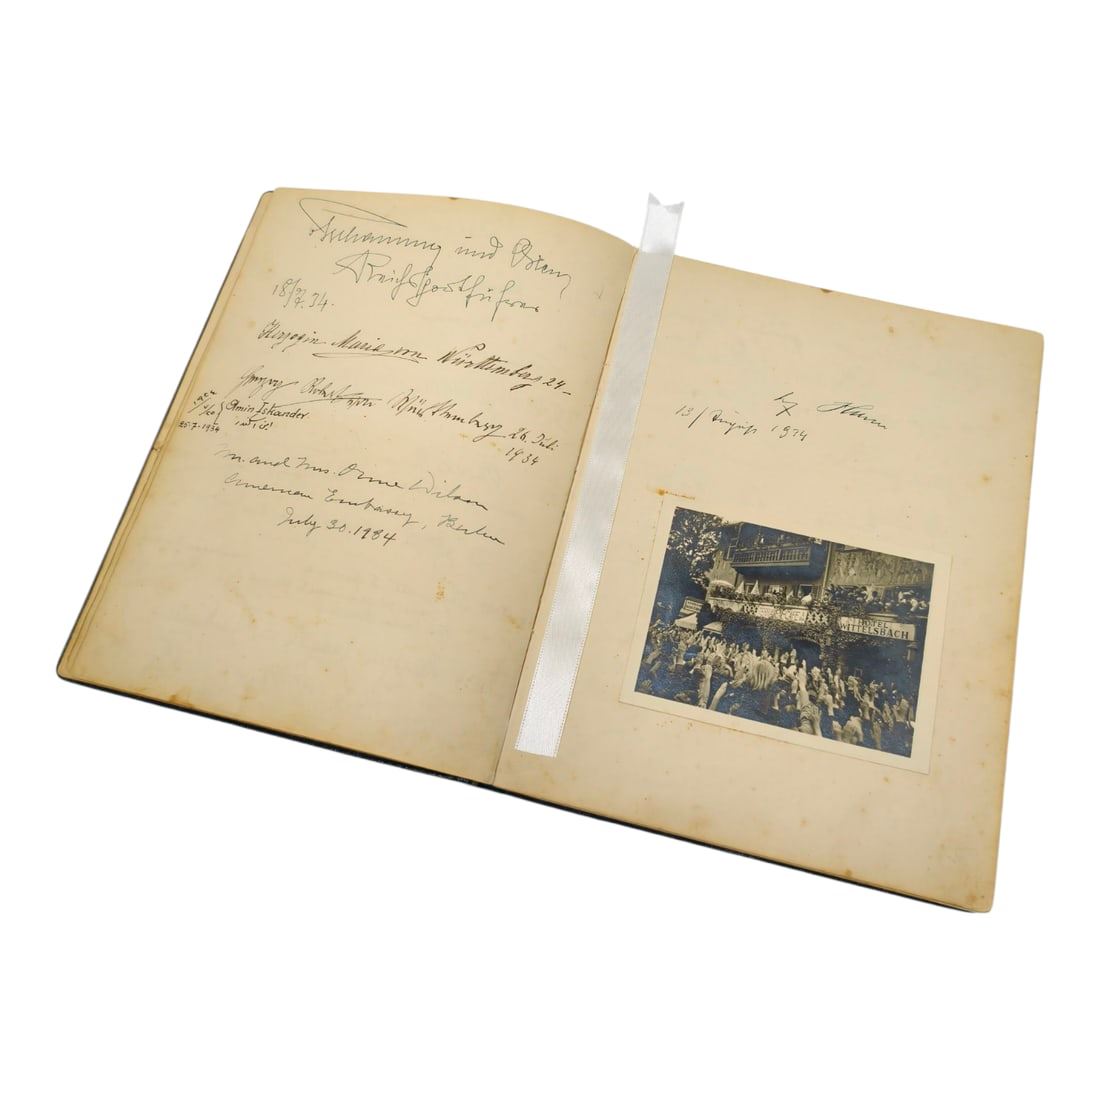 und
Reichssportführer
18/7.34.
Herzogin Maria von Württemberg 24-
Herzog Robert von Württemberg 26. Juli
1934
Amin Iskander
25-7-1934
M. and Mrs. Orme Wilson
American Embassy, Berlin
July 30. 1934
13/August 1934
HOTEL
WITTELSBACH